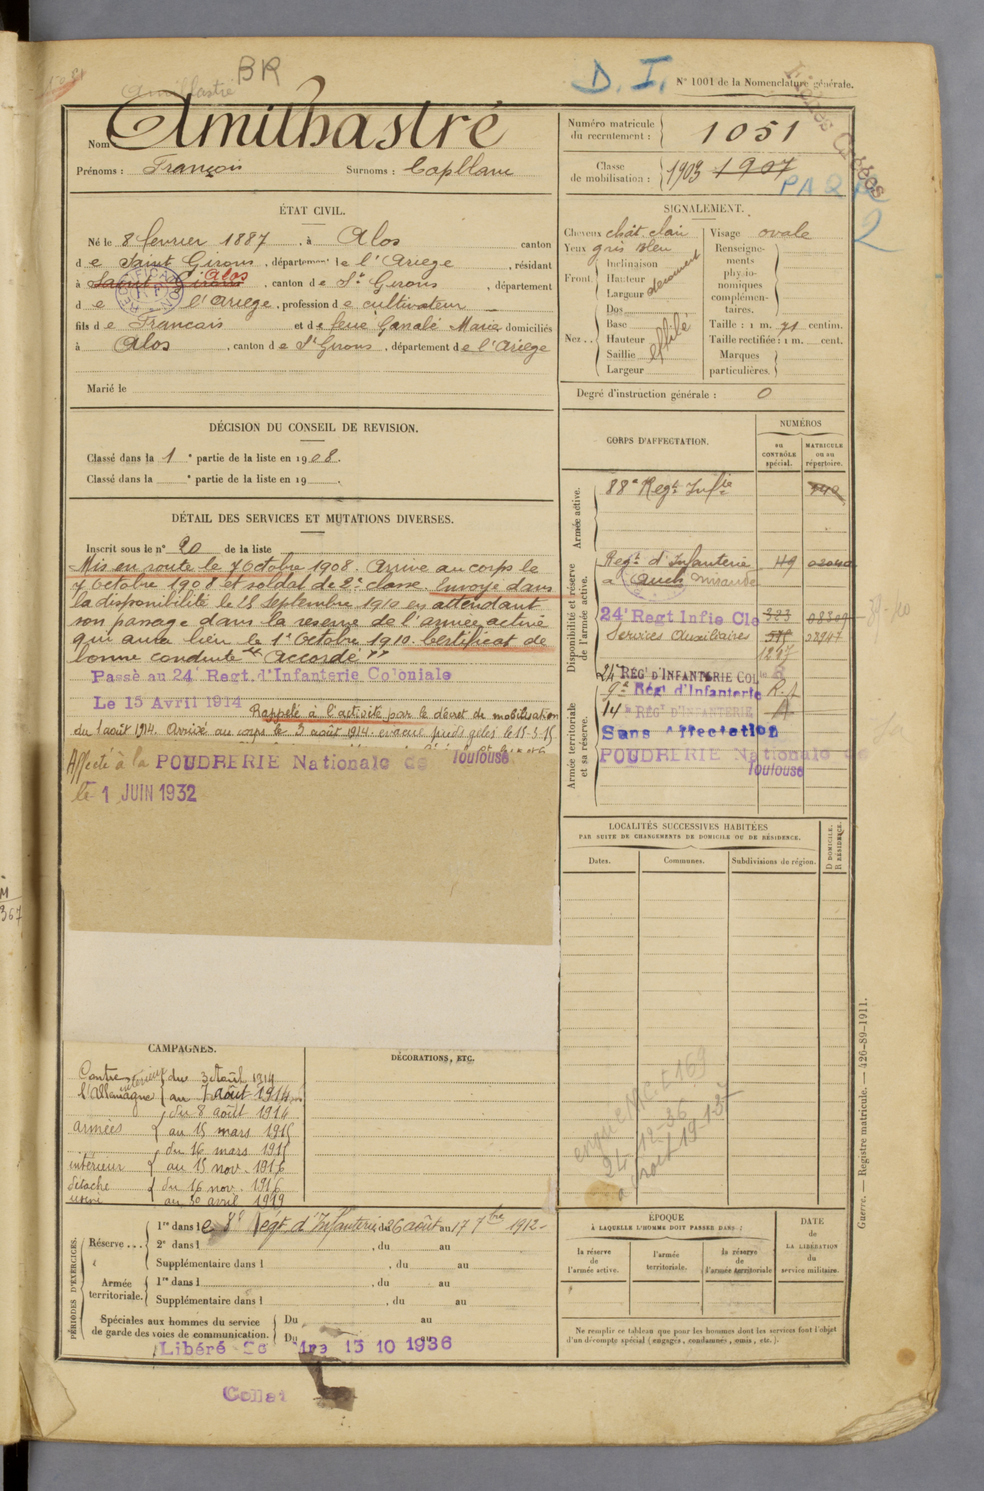 BR
D. I.
N° 1001 de la Nomenclature générale.
Amilhastré
Nom Amilhastré
Prénoms : François Surnoms : Capblanc
Numéro matricule du recrutement : 1051
Classe de mobilisation : 1903 1907
2
ÉTAT CIVIL.
Né le 8 février 1887, à Alos canton
de Saint Girons, département de l'Ariège, résidant
à Saint Girons Alos, canton de St Girons, département
de l'Ariège, profession de cultivateur
fils de Francais et de feue Galabé Marie, domiciliés
à Alos, canton de St Girons, département de l'Ariège
Marié le
SIGNALEMENT.
Cheveux chât. clair
Yeux gris bleu
Front Inclinaison
Hauteur
Largeur
Nez Dos
Base
Hauteur effilé
Saillie
Largeur
Visage ovale
Renseignements physionomiques complémentaires.
Taille : 1 m. 71 centim.
Taille rectifiée : 1 m. cent.
Marques particulières.
Degré d'instruction générale : 0
DÉCISION DU CONSEIL DE REVISION.
Classé dans la 1e partie de la liste en 1908.
Classé dans la e partie de la liste en 19 .
DÉTAIL DES SERVICES ET MUTATIONS DIVERSES.
Inscrit sous le n° 20 de la liste
Mis en route le 7 Octobre 1908. Arrivé au corps le
7 Octobre 1908 et soldat de 2e classe. Envoyé dans
la disponibilité le 25 Septembre 1910 en attendant
son passage dans la réserve de l'armée active
qui aura lieu le 1er Octobre 1910. Certificat de
bonne conduite "Accordé"
Passé au 24e Regt. d'Infanterie Coloniale
Le 15 Avril 1914 Rappelé à l'activité par le décret de mobilisation
du 1 août 1914. Arrivé au corps le 3 août 1914. évacué pieds gelés le 15-3-15
Affecté à la POUDRERIE Nationale de Toulouse
le 1 JUIN 1932
CORPS D'AFFECTATION.
NUMÉROS
au CONTRÔLE spécial.
MATRICULE ou au répertoire.
Armée active.
88e Regt Infie
Disponibilité et réserve de l'armée active.
Regt d'Infanterie 49
a Auch Mirande
24e Regt Infie Cle 323 08309
Services Auxiliaires
1247
24e RÉGt D'INFANTERIE COL
9e Régt d'Infanterie
14e RÉGt D'INFANTERIE
Armée territoriale et sa réserve.
Sans Affectation
POUDRERIE Nationale de
Toulouse
LOCALITÉS SUCCESSIVES HABITÉES
PAR SUITE DE CHANGEMENTS DE DOMICILE OU DE RÉSIDENCE.
Dates. Communes. Subdivisions de région. D DOMICILE. R RÉSIDENCE.
CAMPAGNES.
DÉCORATIONS, ETC.
Contre l'Allemagne
intérieur du 3 Août 1914
au 7 août 1914
armées du 8 août 1914
au 15 mars 1915
intérieur du 16 mars 1915
au 15 nov. 1916
détaché usine du 16 nov. 1916
au 30 avril 1919
24-12-36
19-1-37
PÉRIODES D'EXERCICES.
Réserve ... 1re dans le 8e Régt d'Infanterie, du 26 août au 17 7bre 1912
2e dans l , du au
Supplémentaire dans l , du au
Armée territoriale. 1re dans l , du au
Supplémentaire dans l , du au
Spéciales aux hommes du service de garde des voies de communication. Du au
Du au
Libéré 13 10 1936
ÉPOQUE
À LAQUELLE L'HOMME DOIT PASSER DANS :
la réserve de l'armée active.
l'armée territoriale.
la réserve de l'armée territoriale
DATE de LA LIBÉRATION du service militaire.
Ne remplir ce tableau que pour les hommes dont les services font l'objet
d'un décompte spécial (engagés, condamnés, omis, etc.).
Guerre. — Registre matricule. — 426-89-1911.
M
367